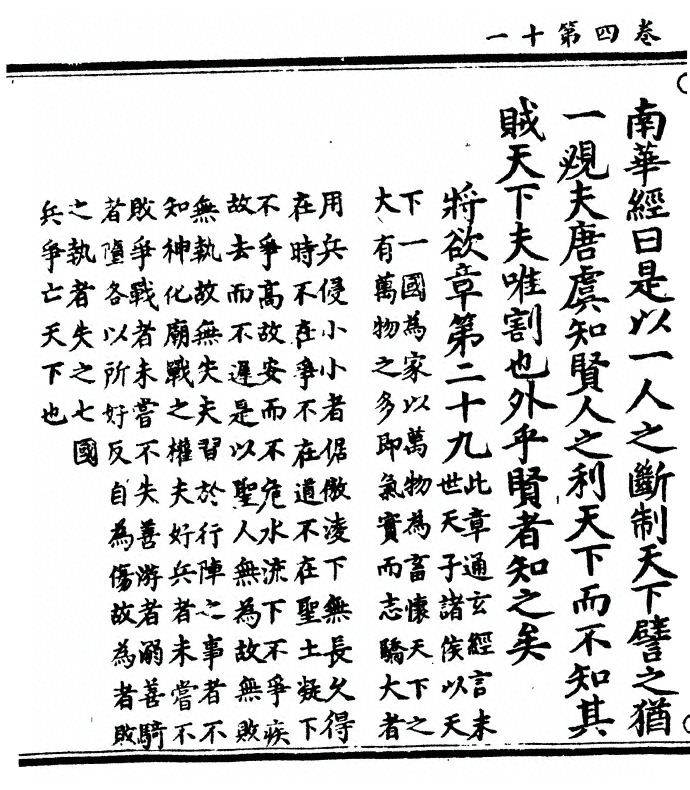 卷四第十一
南華經曰是以一人之斷制天下譬之猶
一覕夫唐虞知賢人之利天下而不知其
賊天下夫唯割也外乎賢者知之矣
將欲章第二十九
此章通玄經言末
世天子諸侯以天
下一國為家以萬物為畜懷天下之
大有萬物之多即氣實而志驕大者
用兵侵小小者倨傲淩下無長久得
在時不在爭不在道不在聖土凝下
不爭高故安而不危水流下不爭疾
故去而不遲是以聖人無為故無敗
無執故無失夫習於行陣之事者不
知神化廟戰之權夫好兵者未嘗不
敗爭戰者未嘗不失善游者溺善騎
者墮各以所好反自為傷故為者敗
之執者失之七國
兵爭亡天下也